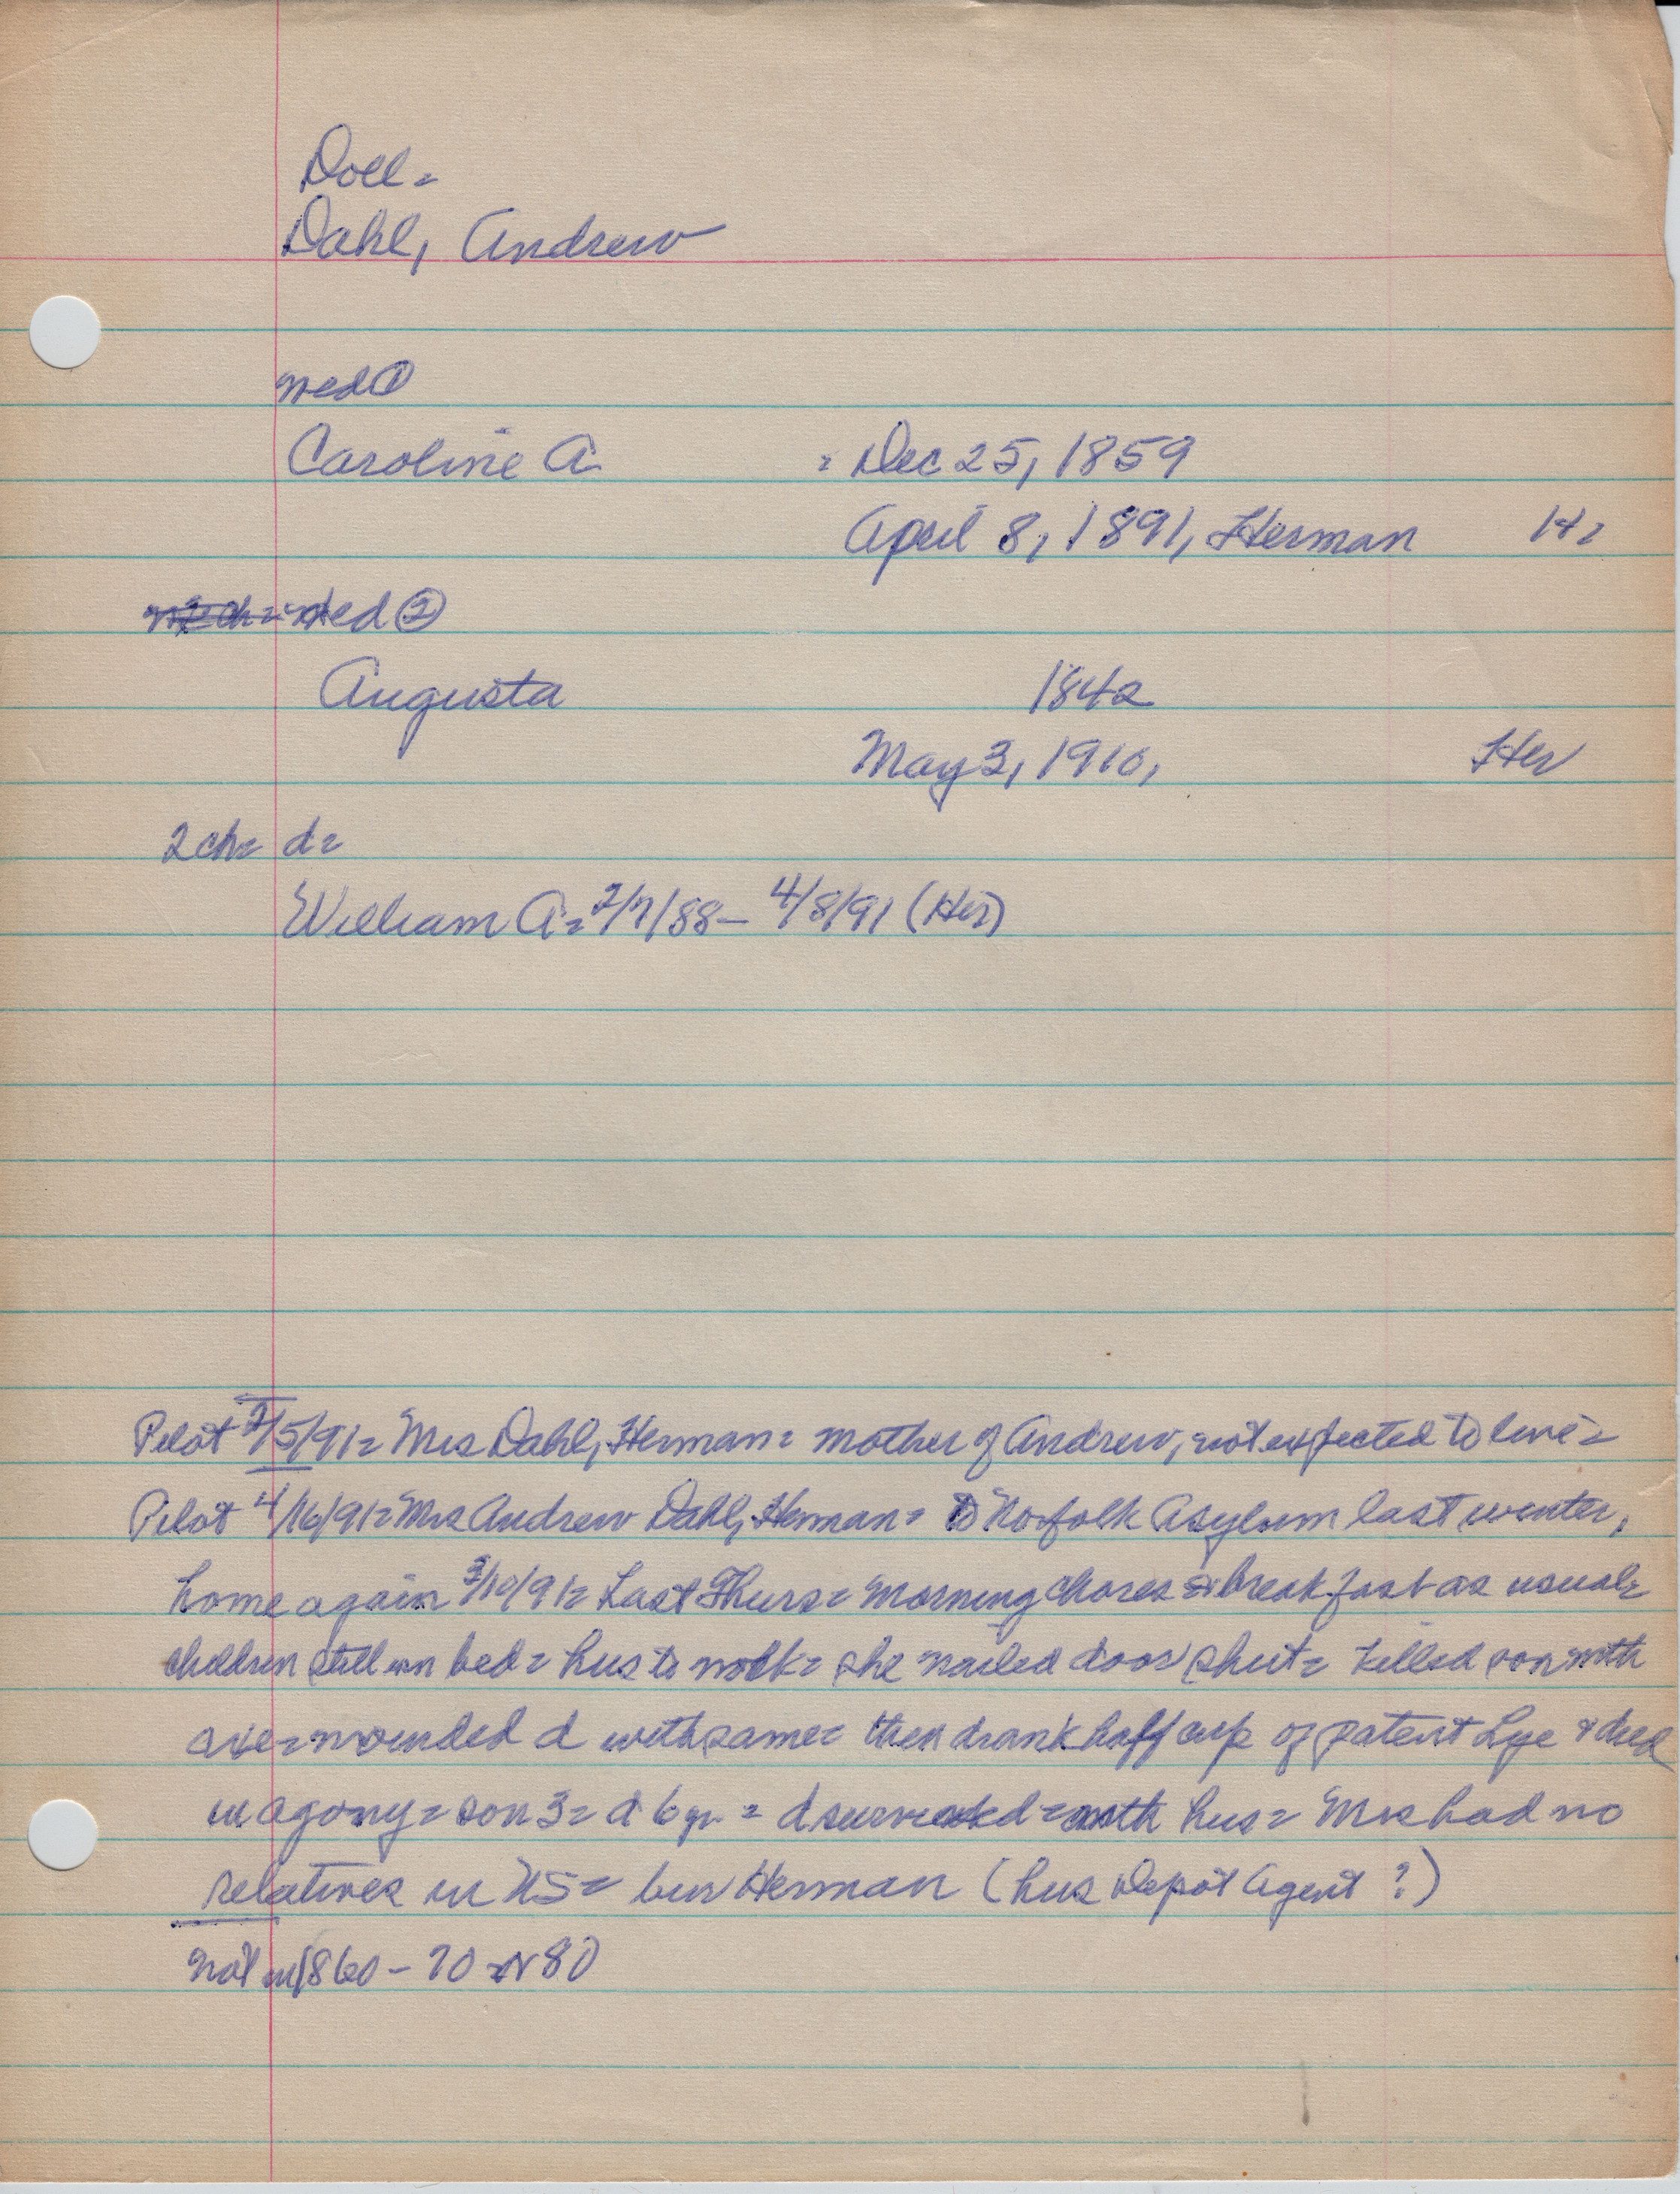 Doll =
Dahl, Andrew
wed ①
Caroline A. = Dec 25, 1859
April 8, 1891, Herman H=
wed ②
Augusta 1842
May 3, 1910, Her
2 ch= d=
William A= 2/7/88 - 4/8/91 (Her)
Pilot 2/5/91= Mrs Dahl, Herman= mother of Andrew, not expected to live=
Pilot 4/16/91= Mrs Andrew Dahl, Herman= to Norfolk Asylum last winter,
home again 3/10/91= Last Thurs= morning chores & breakfast as usual=
children still in bed= hus to work= she nailed door shut= killed son with
axe= wounded d with same= then drank half cup of patent Lye & died
in agony= son 3= d 6 yr. = d survived= with hus= Mrs had no
relatives in US= bur Herman (hus Depot Agent ?)
not in 1860 - 70 or 80